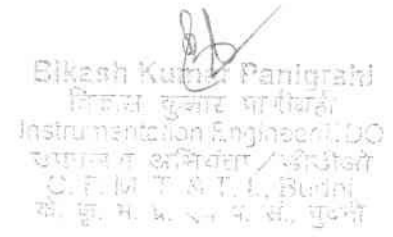 Bikash Kumar Panigrahi
बिकास कुमार पाणिग्रही
Instrumentation Engineer/DDO
अभियंता / डीडीओ
C. F. M. T. & T. I., Budni
बुदनी